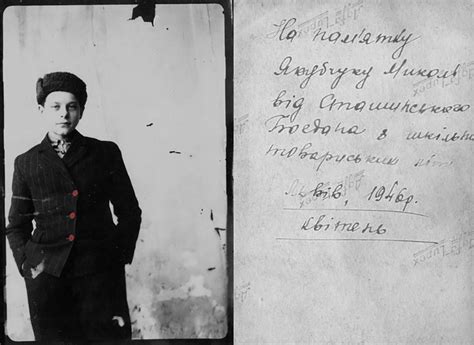 На пам'ятку
Якубчуку Миколі
від Сташинського
Богдана з шкільно
товариських літ
Львів, 1946р.
Квітень